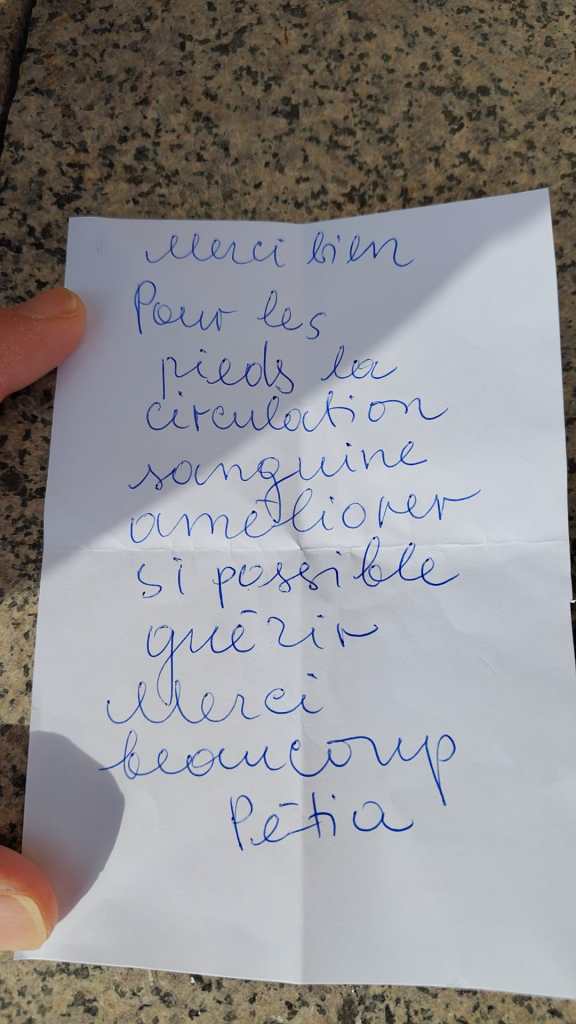 Merci bien
Pour les
pieds la
circulation
sanguine
améliorer
si possible
guérir
Merci
beaucoup
Pétia